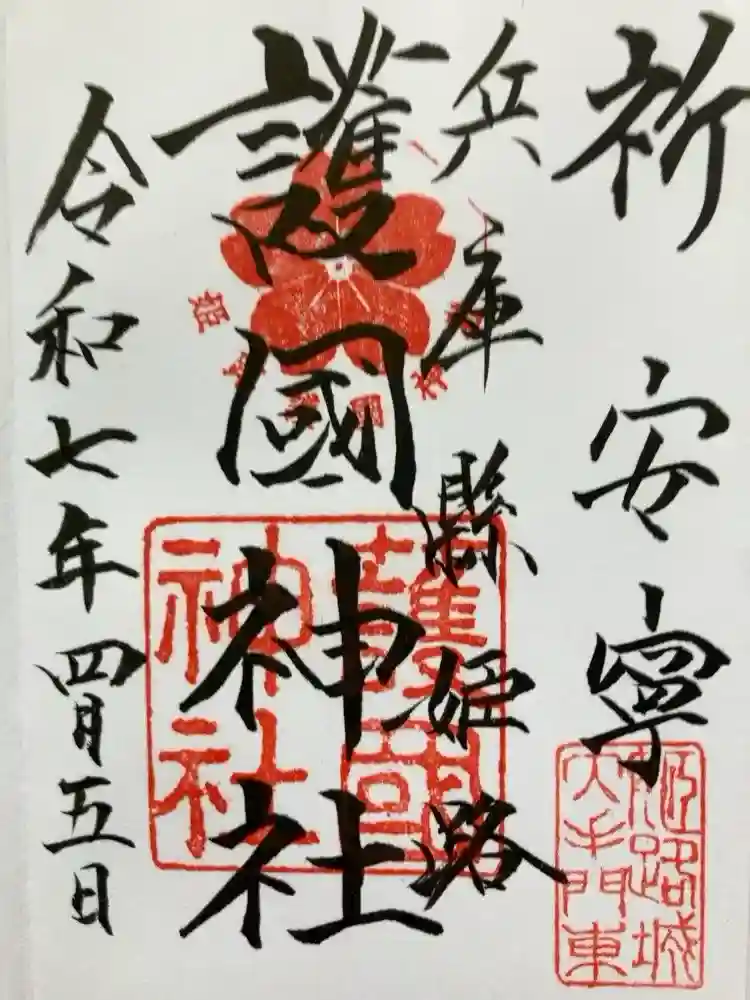 祈安寧
兵庫縣姫路
護國神社
令和七年四月五日
護國
神社
姫路城
大手門東